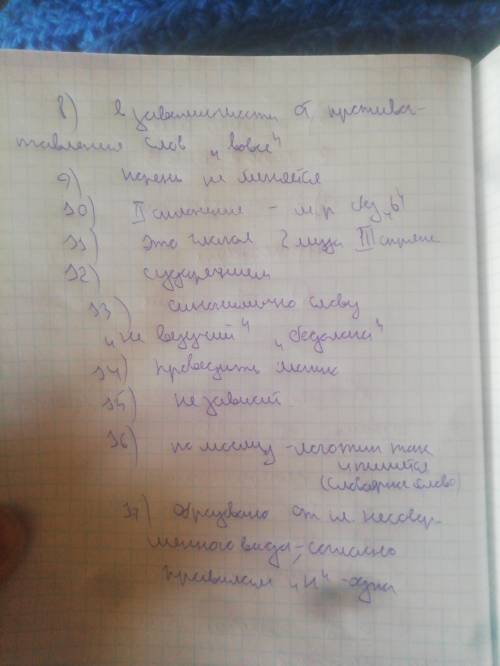 8) в зависимости от противопо-
ставления слов „вовсе"
9) корень не меняется
10) II склонения - м.р без „ь"
11) это глагол 2 лица III спряже
12) с ударением
13) синонимично слову
„не везучий" „бедолага"
14) проводить
15) не зависит
16) по - логотип так
и пишется
(словарное слово)
17) образовано от гл. несовер-
шенного вида, согласно
правилам „н" - одна